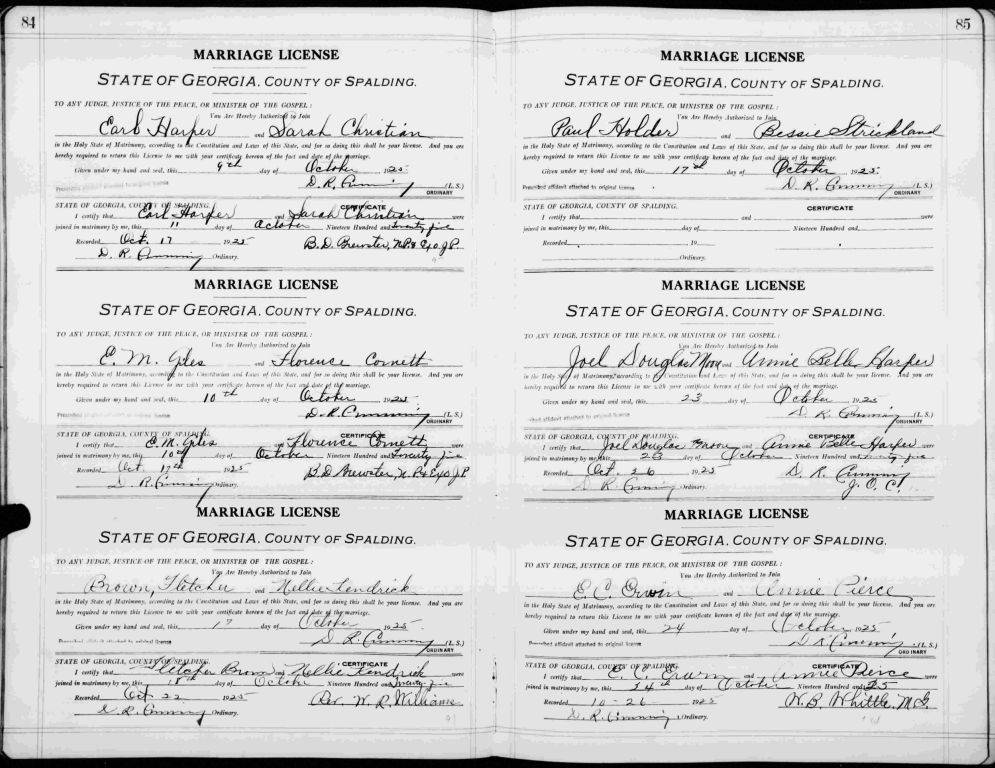 84
MARRIAGE LICENSE
STATE OF GEORGIA, COUNTY OF SPALDING.
TO ANY JUDGE, JUSTICE OF THE PEACE, OR MINISTER OF THE GOSPEL:
You Are Hereby Authorized to Join
Earl Harper and Sarah Christian
in the Holy State of Matrimony, according to the Constitution and Laws of this State, and for so doing this shall be your license. And you are
hereby required to return this License to me with your certificate hereon of the fact and date of the marriage.
Given under my hand and seal, this 9th day of October 1925
D. R. Cumming (L.S.)
ORDINARY
STATE OF GEORGIA, COUNTY OF SPALDING. CERTIFICATE
I certify that Earl Harper and Sarah Christian were
joined in matrimony by me, this 11 day of October Nineteen Hundred and Twenty five
Recorded Oct. 17 1925 B. D. Brewster, N.P. & Exo. J.P.
D. R. Cumming Ordinary.
MARRIAGE LICENSE
STATE OF GEORGIA, COUNTY OF SPALDING.
TO ANY JUDGE, JUSTICE OF THE PEACE, OR MINISTER OF THE GOSPEL:
You Are Hereby Authorized to Join
E. M. Giles and Florence Cornett
in the Holy State of Matrimony, according to the Constitution and Laws of this State, and for so doing this shall be your license. And you are
hereby required to return this License to me with your certificate hereon of the fact and date of the marriage.
Given under my hand and seal, this 10th day of October 1925
D. R. Cumming (L.S.)
ORDINARY
STATE OF GEORGIA, COUNTY OF SPALDING. CERTIFICATE
I certify that E. M. Giles and Florence Cornett were
joined in matrimony by me, this 10th day of October Nineteen Hundred and Twenty five
Recorded Oct. 17th 1925 B. D. Brewster, N.P. & Exo J.P.
D. R. Cumming Ordinary.
MARRIAGE LICENSE
STATE OF GEORGIA, COUNTY OF SPALDING.
TO ANY JUDGE, JUSTICE OF THE PEACE, OR MINISTER OF THE GOSPEL:
You Are Hereby Authorized to Join
Brown, Fletcher and Nellie Kendrick
in the Holy State of Matrimony, according to the Constitution and Laws of this State, and for so doing this shall be your license. And you are
hereby required to return this License to me with your certificate hereon of the fact and date of the marriage.
Given under my hand and seal, this 17 day of October 1925
D. R. Cumming (L.S.)
Prescribed affidavit attached to original license ORDINARY
STATE OF GEORGIA, COUNTY OF SPALDING. CERTIFICATE
I certify that Fletcher Brown and Nellie Kendrick were
joined in matrimony by me, this 18th day of October Nineteen Hundred and Twenty five
Recorded Oct 22 1925 Rev. W. R. Williams
D. R. Cumming Ordinary.
85
MARRIAGE LICENSE
STATE OF GEORGIA, COUNTY OF SPALDING.
TO ANY JUDGE, JUSTICE OF THE PEACE, OR MINISTER OF THE GOSPEL:
You Are Hereby Authorized to Join
Paul Holder and Bessie Strickland
in the Holy State of Matrimony, according to the Constitution and Laws of this State, and for so doing this shall be your license. And you are
hereby required to return this License to me with your certificate hereon of the fact and date of the marriage.
Given under my hand and seal, this 17th day of October 1925
Prescribed affidavit attached to original license D. R. Cumming (L.S.)
ORDINARY
STATE OF GEORGIA, COUNTY OF SPALDING. CERTIFICATE
I certify that and were
joined in matrimony by me, this day of Nineteen Hundred and
Recorded 19
Ordinary.
MARRIAGE LICENSE
STATE OF GEORGIA, COUNTY OF SPALDING.
TO ANY JUDGE, JUSTICE OF THE PEACE, OR MINISTER OF THE GOSPEL:
You Are Hereby Authorized to Join
Joel Douglac and Annie Belle Harper
in the Holy State of Matrimony, according to the Constitution and Laws of this State, and for so doing this shall be your license. And you are
hereby required to return this License to me with your certificate hereon of the fact and date of the marriage.
Given under my hand and seal, this 23 day of October 1925
affidavit attached to original license D. R. Cumming (L.S.)
ORDINARY
STATE OF GEORGIA, COUNTY OF SPALDING. CERTIFICATE
I certify that Joel Douglac and Annie Belle Harper were
joined in matrimony by me, this 23 day of October Nineteen Hundred and Twenty five
Recorded Oct. 26 1925 D. R. Cumming
D. R. Cumming Ordinary. J. O. C.
MARRIAGE LICENSE
STATE OF GEORGIA, COUNTY OF SPALDING.
TO ANY JUDGE, JUSTICE OF THE PEACE, OR MINISTER OF THE GOSPEL:
You Are Hereby Authorized to Join
E. C. Erwin and Annie Pierce
in the Holy State of Matrimony, according to the Constitution and Laws of this State, and for so doing this shall be your license. And you are
hereby required to return this License to me with your certificate hereon of the fact and date of the marriage.
Given under my hand and seal, this 24 day of October 1925
Prescribed affidavit attached to original license D. R. Cumming (L.S.)
ORDINARY
STATE OF GEORGIA, COUNTY OF SPALDING. CERTIFICATE
I certify that E. C. Erwin and Annie Pierce were
joined in matrimony by me, this 24th day of October Nineteen Hundred and 25
Recorded 10-26 1925 W. B. Whittle, M.G.
D. R. Cumming Ordinary.